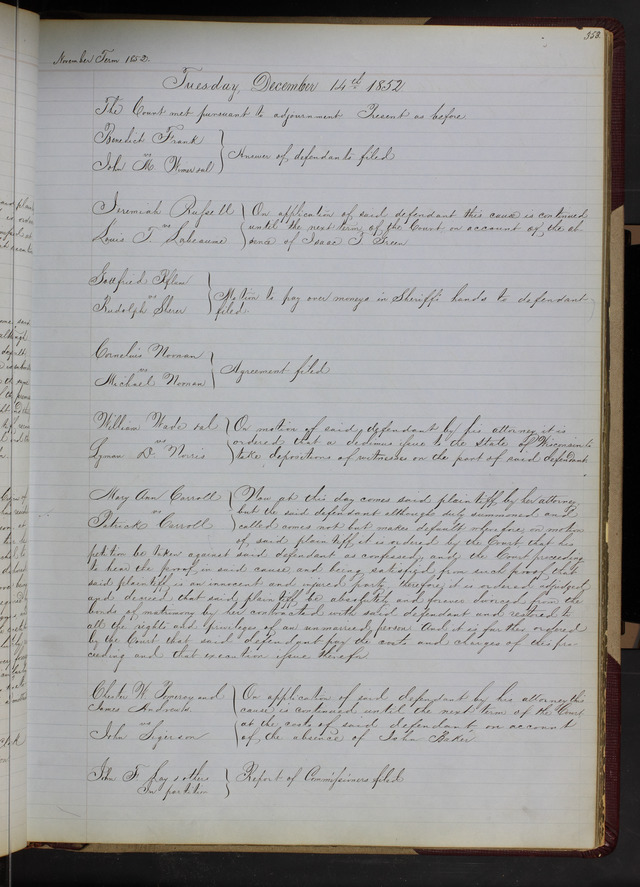 358.
November Term 1852.
Tuesday, December 14th 1852
The Court met pursuant to adjournment. Present as before
Benedict Frank
vs
John M. Wimer et al
Answer of defendants filed
Jeremiah Russell
vs
Louis T. Labeaume
On application of said defendant this cause is continued
until the next term of the Court on account of the ab
sence of Isaac T. Green
Gottfried
vs
Rudolph
Motion to pay over moneys in Sheriffs hands to defendant
filed.
Cornelius Noonan
vs
Michael Noonan
Agreement filed
William Wade et al
vs
Lyman D. Norris
On motion of said defendant by his attorney it is
ordered that a dedimus issue to the State of Wisconsin to
take depositions of witnesses on the part of said defendant.
Mary Ann Carroll
vs
Patrick Carroll
Now at this day comes said plaintiff by her attorney
but the said defendant although duly summoned and
called comes not but makes default wherefore on motion
of said plaintiff it is ordered by the Court that her
petition be taken against said defendant as confessed, and the Court proceeding
to hear the proof in said cause and being satisfied from such proof that
said plaintiff is an innocent and injured party, therefore it is ordered, adjudged
and decreed that said plaintiff be absolutely and forever divorced from the
bonds of matrimony by her contracted with said defendant and restored to
all the rights and privileges of an unmarried person. And it is further ordered
by the Court that said defendant pay the costs and charges of this pro
ceeding and that execution issue therefor
W. and
James Andrews
vs
John Sigerson
On application of said defendant by his attorney this
cause is continued until the next term of the Court
at the costs of said defendant, on account
of the absence of John Baker.
John F. & others
In partition
Report of Commissioners filed